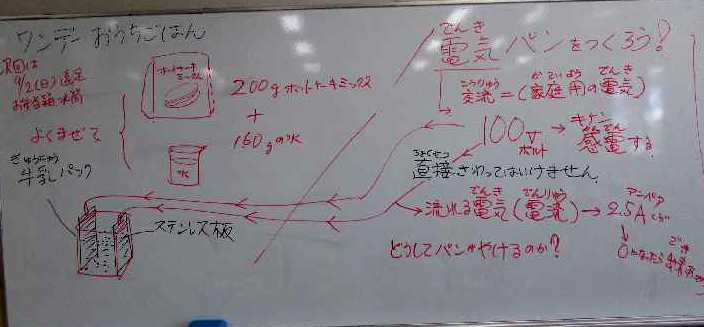 ワンデーおうちごはん
次回は
9/2(日)遠足
お弁当箱 水筒
ホットケーキ
ミックス
200gホットケーキミックス
+
160gの水
水
よくまぜて
ぎゅうにゅう
牛乳パック
ステンレス板
でんき
電気パンをつくろう?
こうりゅう かていよう でんき
交流=(家庭用の電気)
100V
ボルト
→キケン
かんでん
感電する。
ちょくせつ
直接さわってはいけません。
でんき でんりゅう アンペア
流れる電気(電流)→2.5Aくらい
↓
0になったら
どうしてパンがやけるのか?